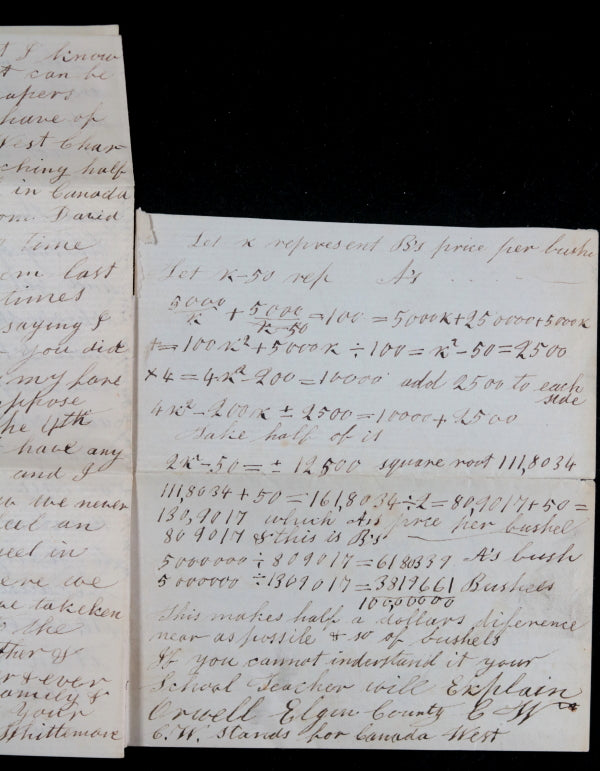 I know
t can be
apers
have of
West Char
ching half
in Canada
om David
time
em last
times
saying I
you did
my love
ppose
he 4th
have any
and I
we never
eel an
eel in
ere we
ve takeken
the
ther &
r & ever
amily &
your
Whittemore
Let x represent B's price per bushe
Let x-50 rep A's
5000/x + 5000/x-50 = 100 = 5000x+250000+5000x
+= 100x²+5000x ÷ 100 = x²-50=2500
×4=4x²-200=10000 add 2500 to each
side
4x²-200x ± 2500=10000+2500
Take half of it
2x-50= ± 12500 square root 111,8034
111,8034+50=161,8034÷2=80,9017+50=
130,9017 which A's price per bushel
80 9017 & this is B's
5000000÷809017=618039 A's bush
5000000÷1309017=3819661 Bushels
10000000
This makes half a dollars diference
near as possile & so of bushels
If you cannot inderstand it your
School Teacher will Explain
Orwell Elgin County C W
C.W. stands for Canada West